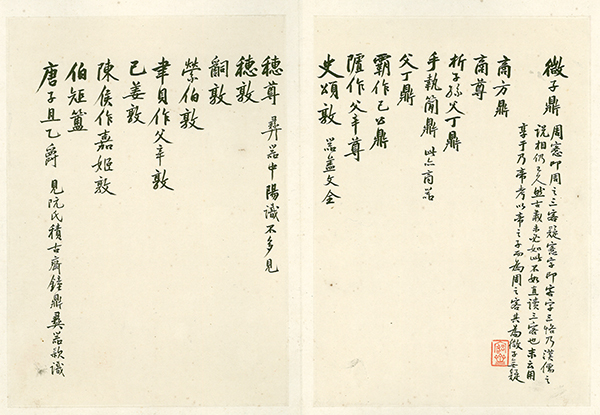 微子鼎
周窓叩周之三客疑窓字叩客字三恪乃漢儒之
說相仍已久然古義未必如此不如直讀三客也末云用
享于乃帝考以帝之子而為周之客其為微子無疑
商方鼎
商尊
析子孫父丁鼎
手執簡鼎 此亦商器
父丁鼎
霸作己公鼎
陮作父辛尊
史頌敦 器蓋文全
穗尊 彝器中陽識不多見
穗敦
嗣敦
榮伯敦
聿貝作父辛敦
己姜敦
陳侯作嘉姬敦
伯矩簋
唐子且乙爵 見阮氏積古齋鐘鼎彝器款識